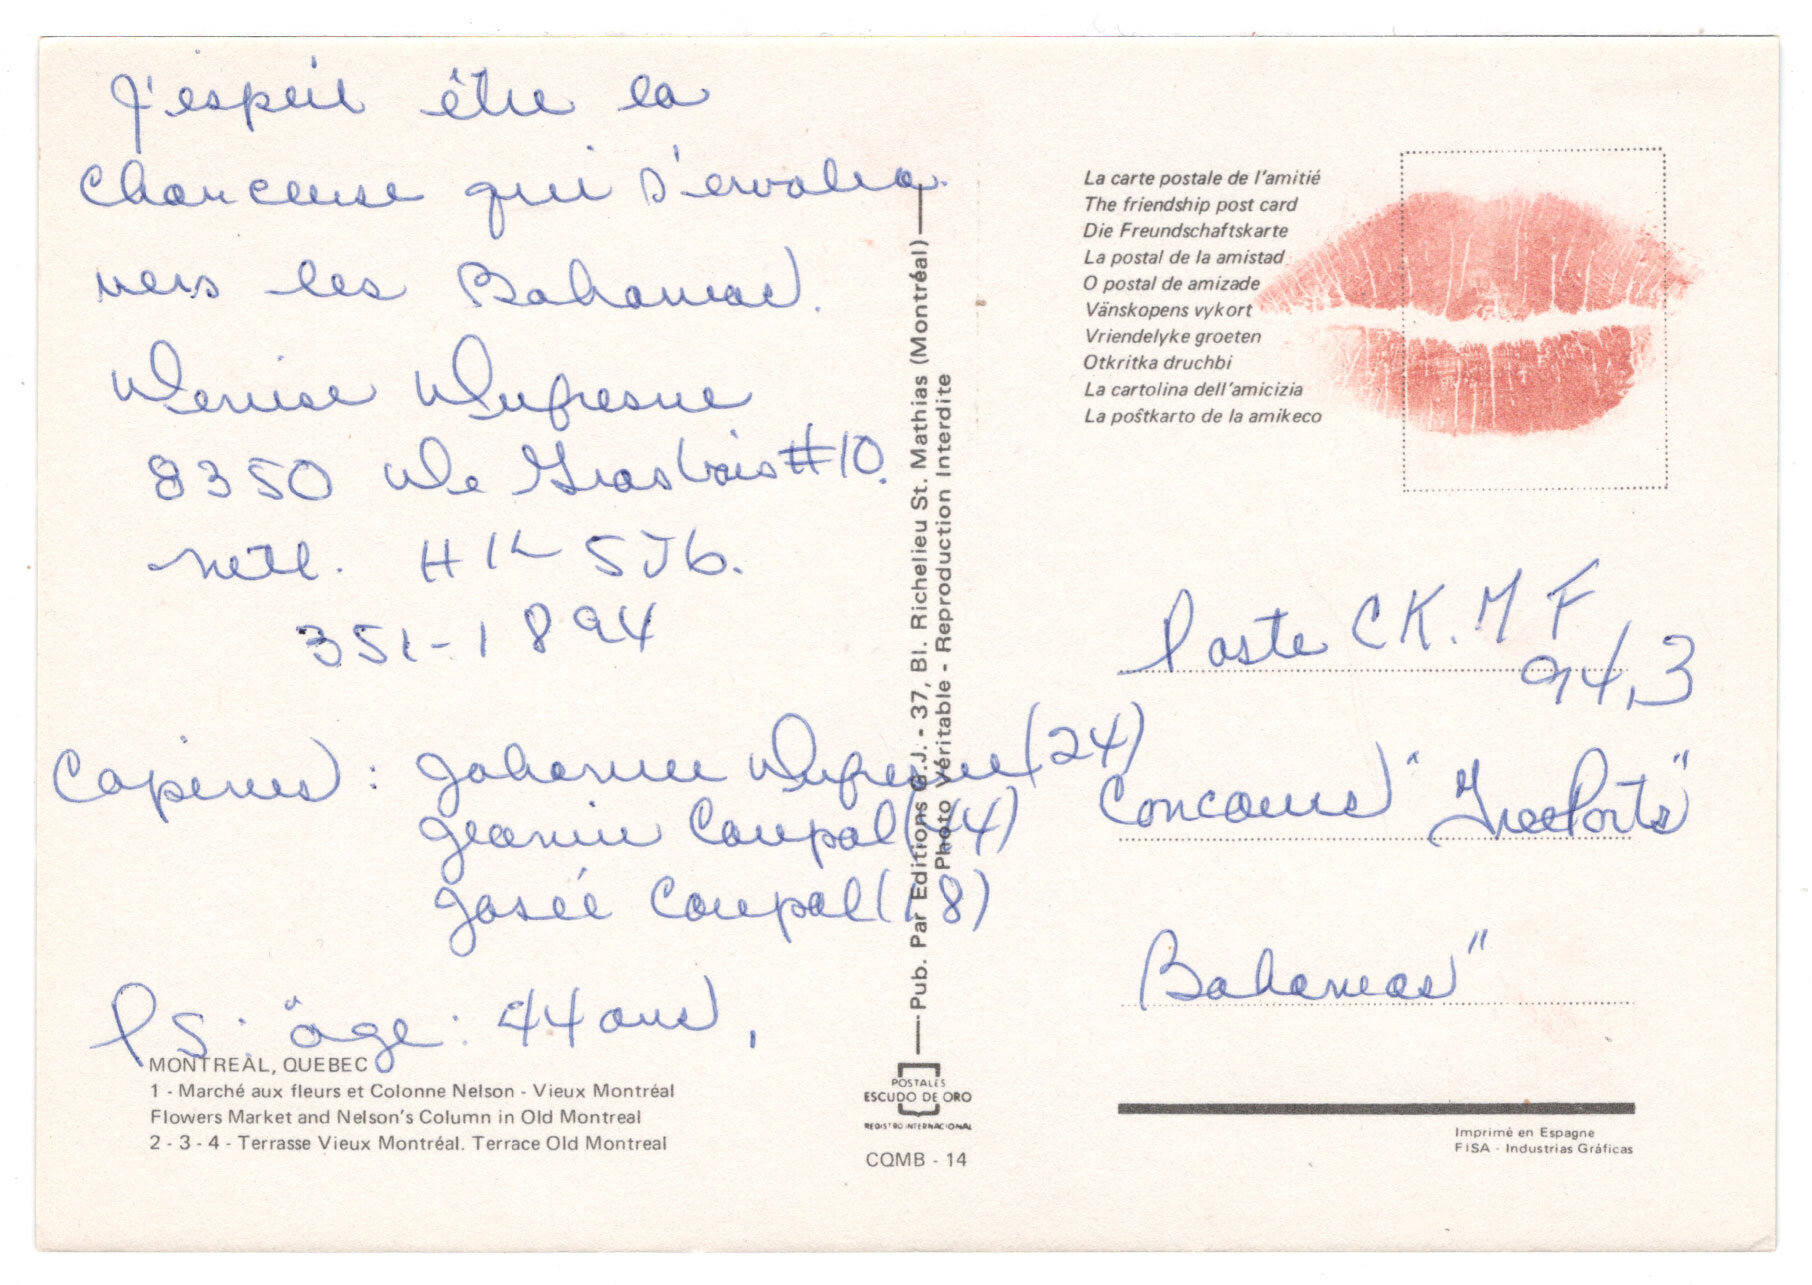 J'espeil être la
chanceuse qui s'envolera
vers les Bahamas.
Denise Dufresne
8350 De Grosbois #10.
Mtl. H1K 5J6.
351-1894
Copines : Johanne Dufresne (24)
Jeannine Coupal (44)
Josée Coupal (18)
PS: âge : 44 ans,
MONTREAL, QUEBEC
1 - Marché aux fleurs et Colonne Nelson - Vieux Montréal
Flowers Market and Nelson's Column in Old Montreal
2 - 3 - 4 - Terrasse Vieux Montréal. Terrace Old Montreal
Pub. Par Editions G.J. - 37, Bl. Richelieu St. Mathias (Montréal)
Photo Véritable - Reproduction Interdite
POSTALES
ESCUDO DE ORO
REGISTRO INTERNACIONAL
CQMB - 14
La carte postale de l'amitié
The friendship post card
Die Freundschaftskarte
La postal de la amistad
O postal de amizade
Vänskopens vykort
Vriendelyke groeten
Otkritka druchbi
La cartolina dell'amicizia
La poŝtkarto de la amikeco
Poste CK.MF
94,3
Concours "FreePorts"
Bahamas"
Imprimé en Espagne
FISA - Industrias Gráficas